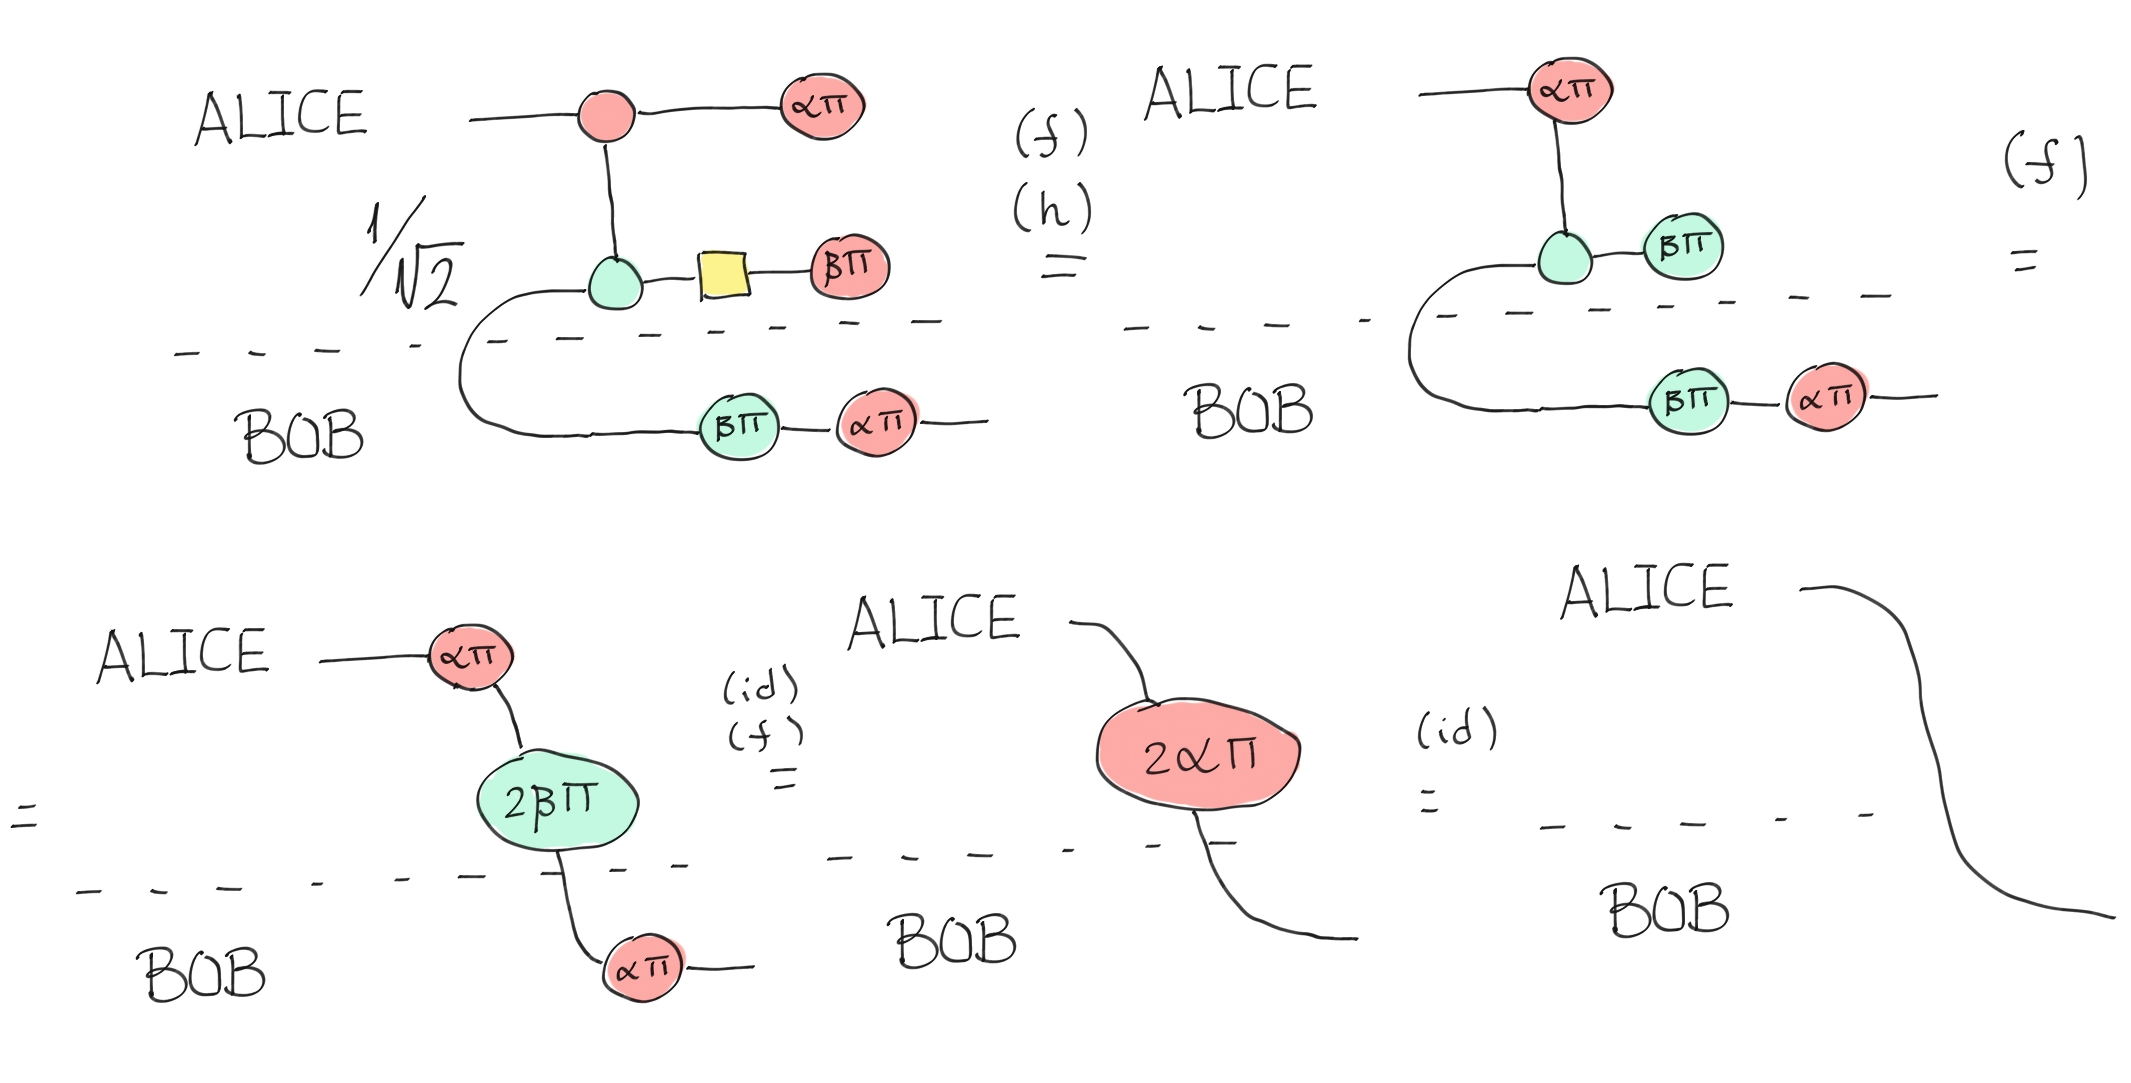 ALICE
απ
1/√2
βπ
BOB
βπ
απ
(f)
(h)
=
ALICE
απ
βπ
BOB
βπ
απ
(f)
=
=
ALICE
απ
2βπ
BOB
απ
(id)
(f)
=
ALICE
2απ
BOB
(id)
=
ALICE
BOB